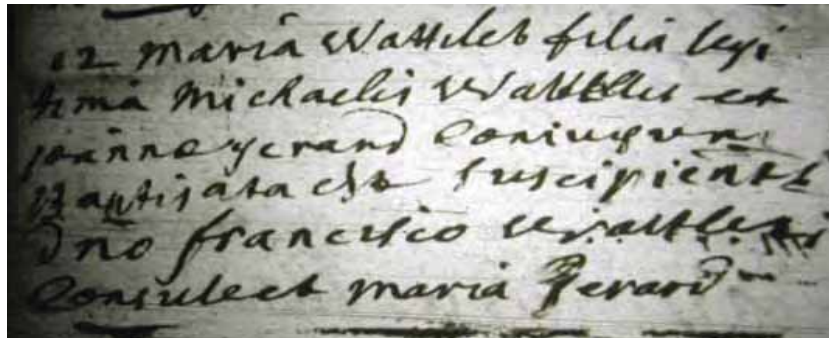 12 maria Wattlet filia legi
tima Michaelis Wattlet et
joanne gerard coniugum
Baptisata est suscipiente
dno francisco Wattlet
Consule et maria gerard